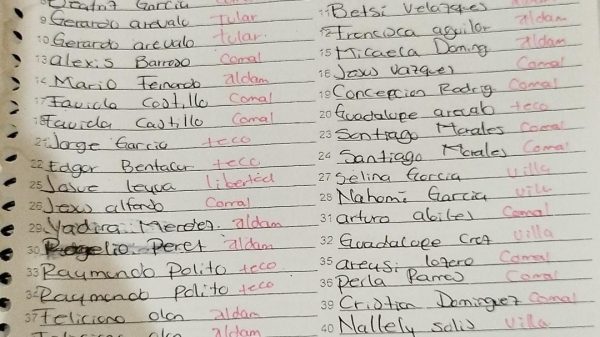 Garcia
9 Gerardo arevalo tular
10 Gerardo arevalo tular.
13 alexis Barroso Comal
14 Mario Fernando aldam
17 Favida Castillo Comal
18 Favida Castillo Comal
21 Jorge Garcia teco
22 Edgar teco
25 Josue leyva libertad
26 Jesus alfonso Comal
29 Yadira Mendez. aldam
30 Rogelio Perez aldam
33 Raymundo Polito teco
34 Raymundo Polito teco
37 Feliciano olan aldam
Feliciano olan aldam
11 Betsi Velazquez aldam
12 francisca aguilar aldam
15 Micaela Doming aldam
16 Jesus Vazquez Comal
19 Concepcion Rodrig Comal
20 Guadalupe teco
23 Santiago Morales Comal
24 Santiago Morales Comal
27 Selina Garcia Villa
28 Nahomi Garcia Villa
31 arturo Comal
32 Guadalupe Cruz Villa
35 Comal
36 Perla Ramos Comal
39 Cristian Dominguez Comal
40 Nallely solis Villa